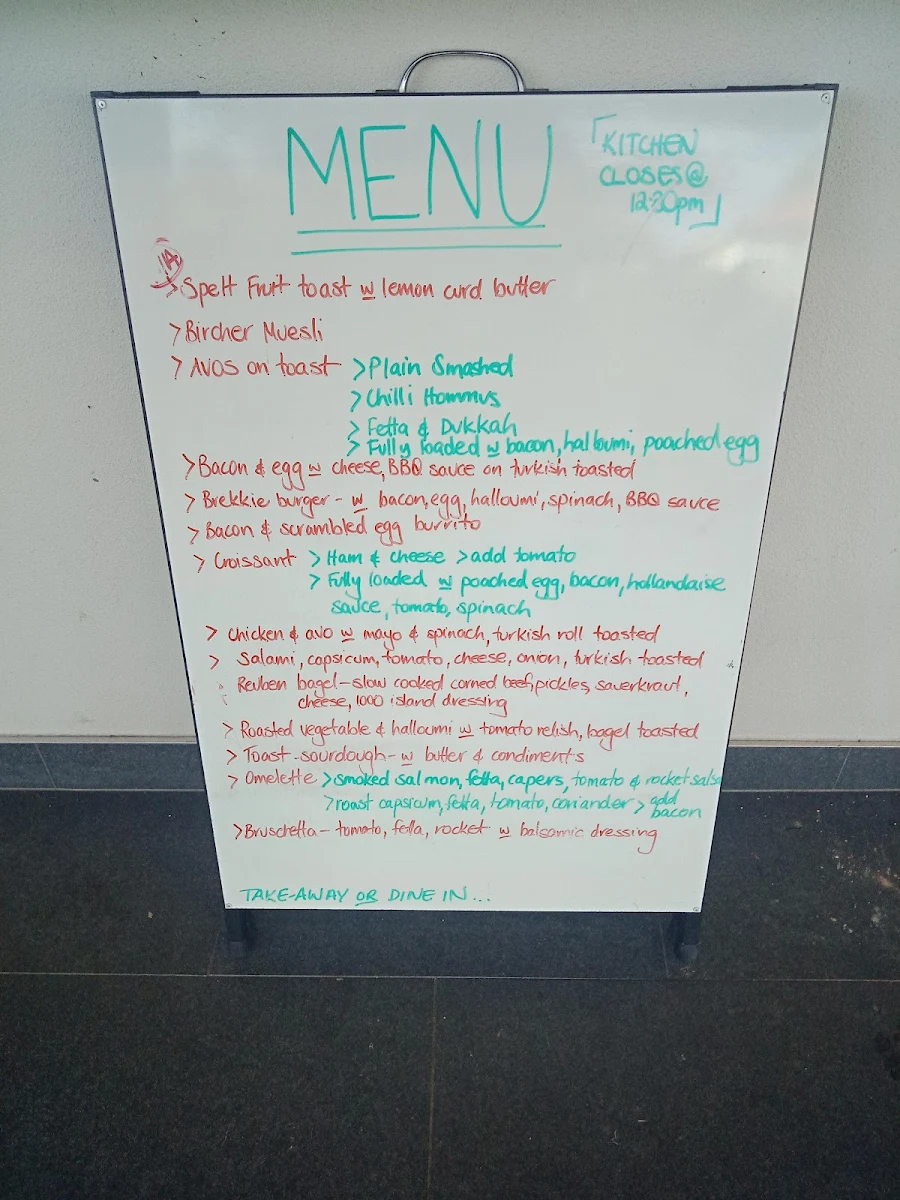 MENU
「KITCHEN
CLOSES@
12:30pm」
>Spelt Fruit toast w lemon curd butter
>Bircher Muesli
>AVOS on toast >Plain Smashed
>Chilli Hommus
>Fetta & Dukkah
>Fully loaded w bacon, halloumi, poached egg
>Bacon & egg w cheese, BBQ sauce on turkish toasted
>Brekkie burger - w bacon, egg, halloumi, spinach, BBQ sauce
>Bacon & scrambled egg burrito
>Croissant >Ham & cheese >add tomato
>Fully loaded w poached egg, bacon, hollandaise
sauce, tomato, spinach
>chicken & avo w mayo & spinach, turkish roll toasted
>Salami, capsicum, tomato, cheese, onion, turkish toasted
Reuben bagel-slow cooked corned beef, pickles, sauerkraut,
cheese, 1000 island dressing
>Roasted vegetable & halloumi w tomato relish, bagel toasted
>Toast-sourdough-w butter & condiments
>Omelette >smoked salmon, fetta, capers, tomato & rocket salsa
>roast capsicum, fetta, tomato, coriander >add
bacon
>Bruschetta- tomato, fetta, rocket w balsamic dressing
TAKE-AWAY OR DINE IN...